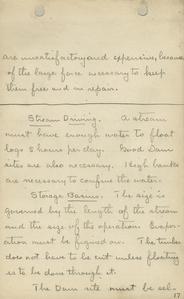 are unsatisfactory and expensive, because
of the large force necessary to keep
them free and in repair.
Stream Driving. A stream
must have enough water to float
logs 8 hours per day. Good Dam
sites are also necessary. High banks
are necessary to confine the water.
Storage Basins. The size is
governed by the length of the stream
and the size of the operation. Evapo-
ration must be figured on. The timber
does not have to be cut unless floating
is to be done through it.
The Dam site must be sel-
17